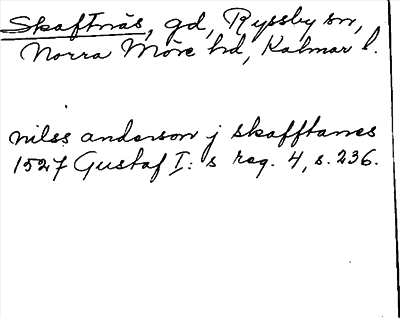 Skaftnäs, gd, Ryssby sn,
Norra Möre hd, Kalmar l.
nilss anderson j skafftanes
1527 Gustaf I:s reg. 4, s. 236.